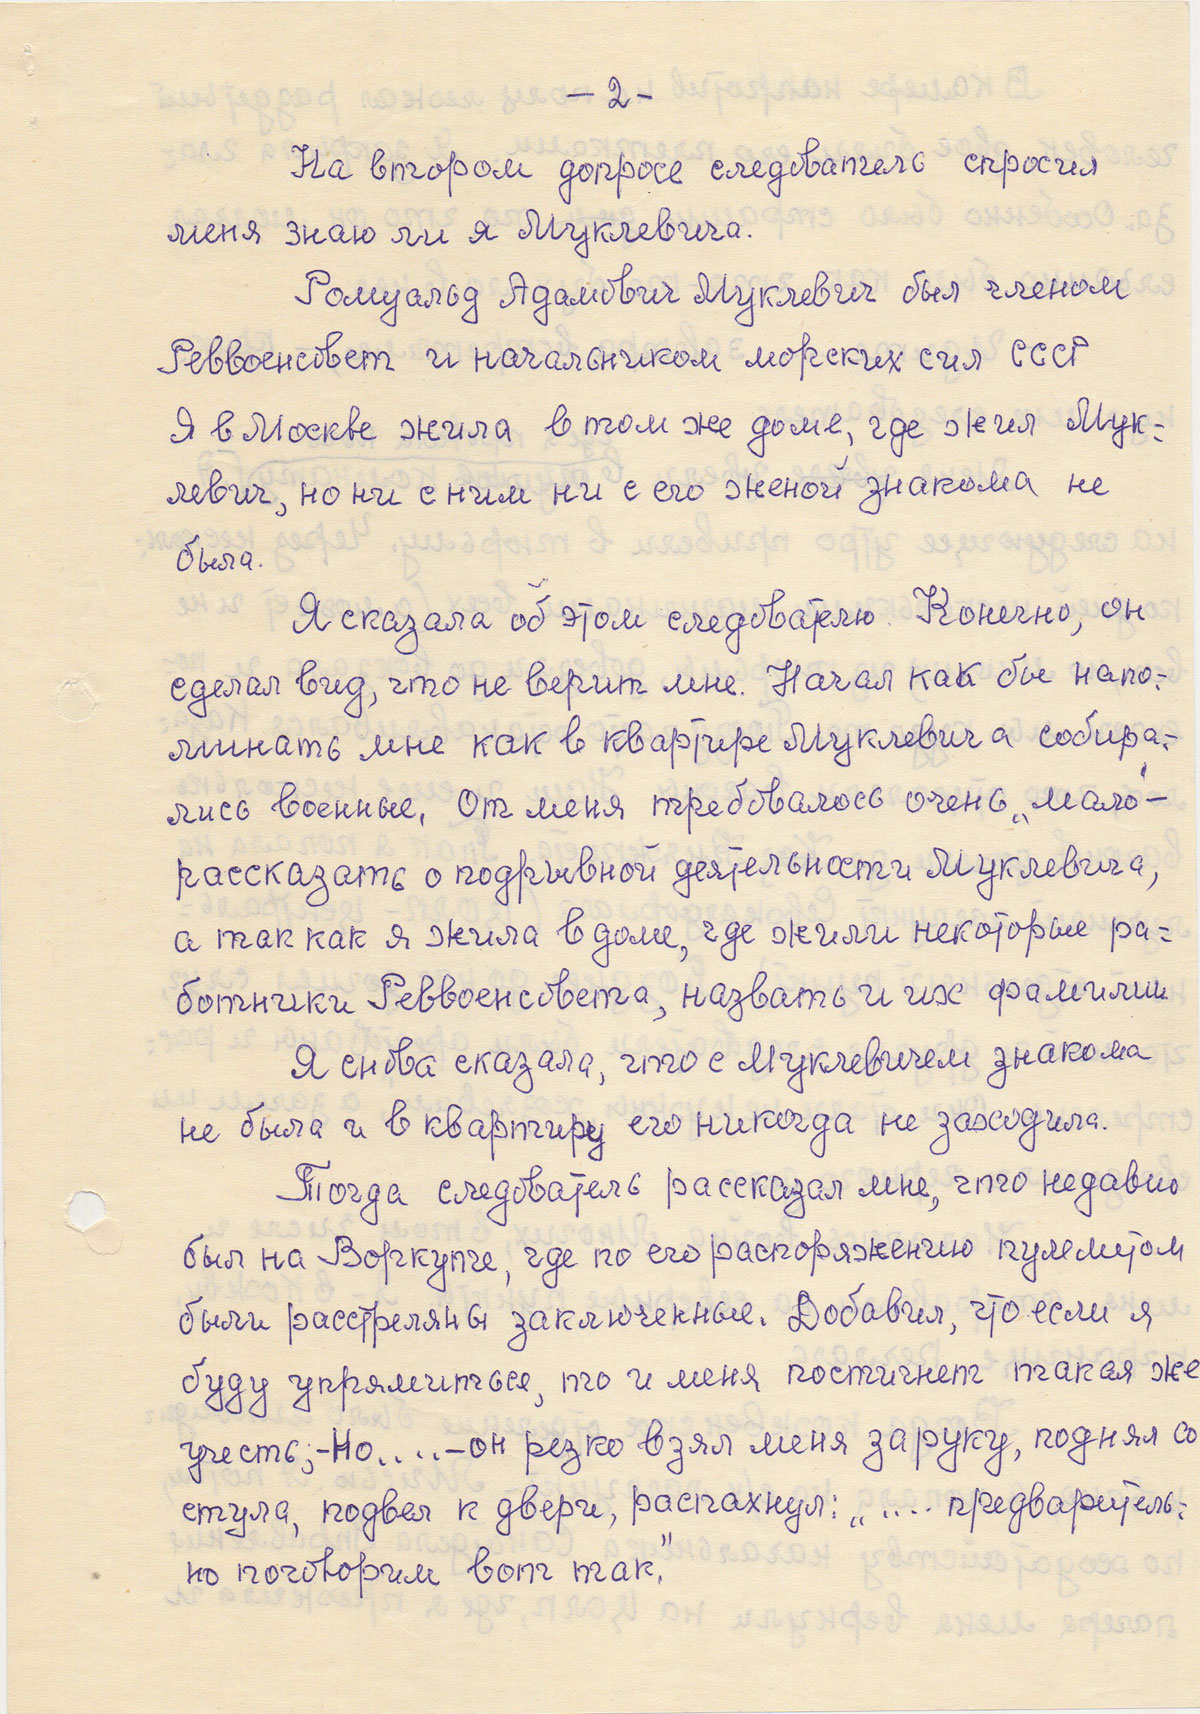 – 2 –
На втором допросе следователь спросил
меня знаю ли я Муклевича.
Ромуальд Адамович Муклевич был членом
Реввоенсовет и начальником морских сил СССР
Я в Москве жила в том же доме, где жил Мук=
левич, но ни с ним ни с его женой знакома не
была.
Я сказала об этом следователю. Конечно, он
сделал вид, что не верит мне. Начал как бы напо=
минать мне как в квартире Муклевича собира=
лись военные. От меня требовалось очень „мало" –
рассказать о подрывной деятельности Муклевича,
а так как я жила в доме, где жили некоторые ра=
ботники Реввоенсовета, назвать и их фамилии
Я снова сказала, что с Муклевичем знакома
не была и в квартиру его никогда не заходила.
Тогда следователь рассказал мне, что недавно
был на Воркуте, где по его распоряжению пулемётом
были расстреляны заключенные. Добавил, что если я
буду упрямиться, то и меня постигнет такая же
участь; -Но.... -он резко взял меня за руку, поднял со
стула, подвел к двери, распахнул: „.... предваритель=
но поговорим вот так."